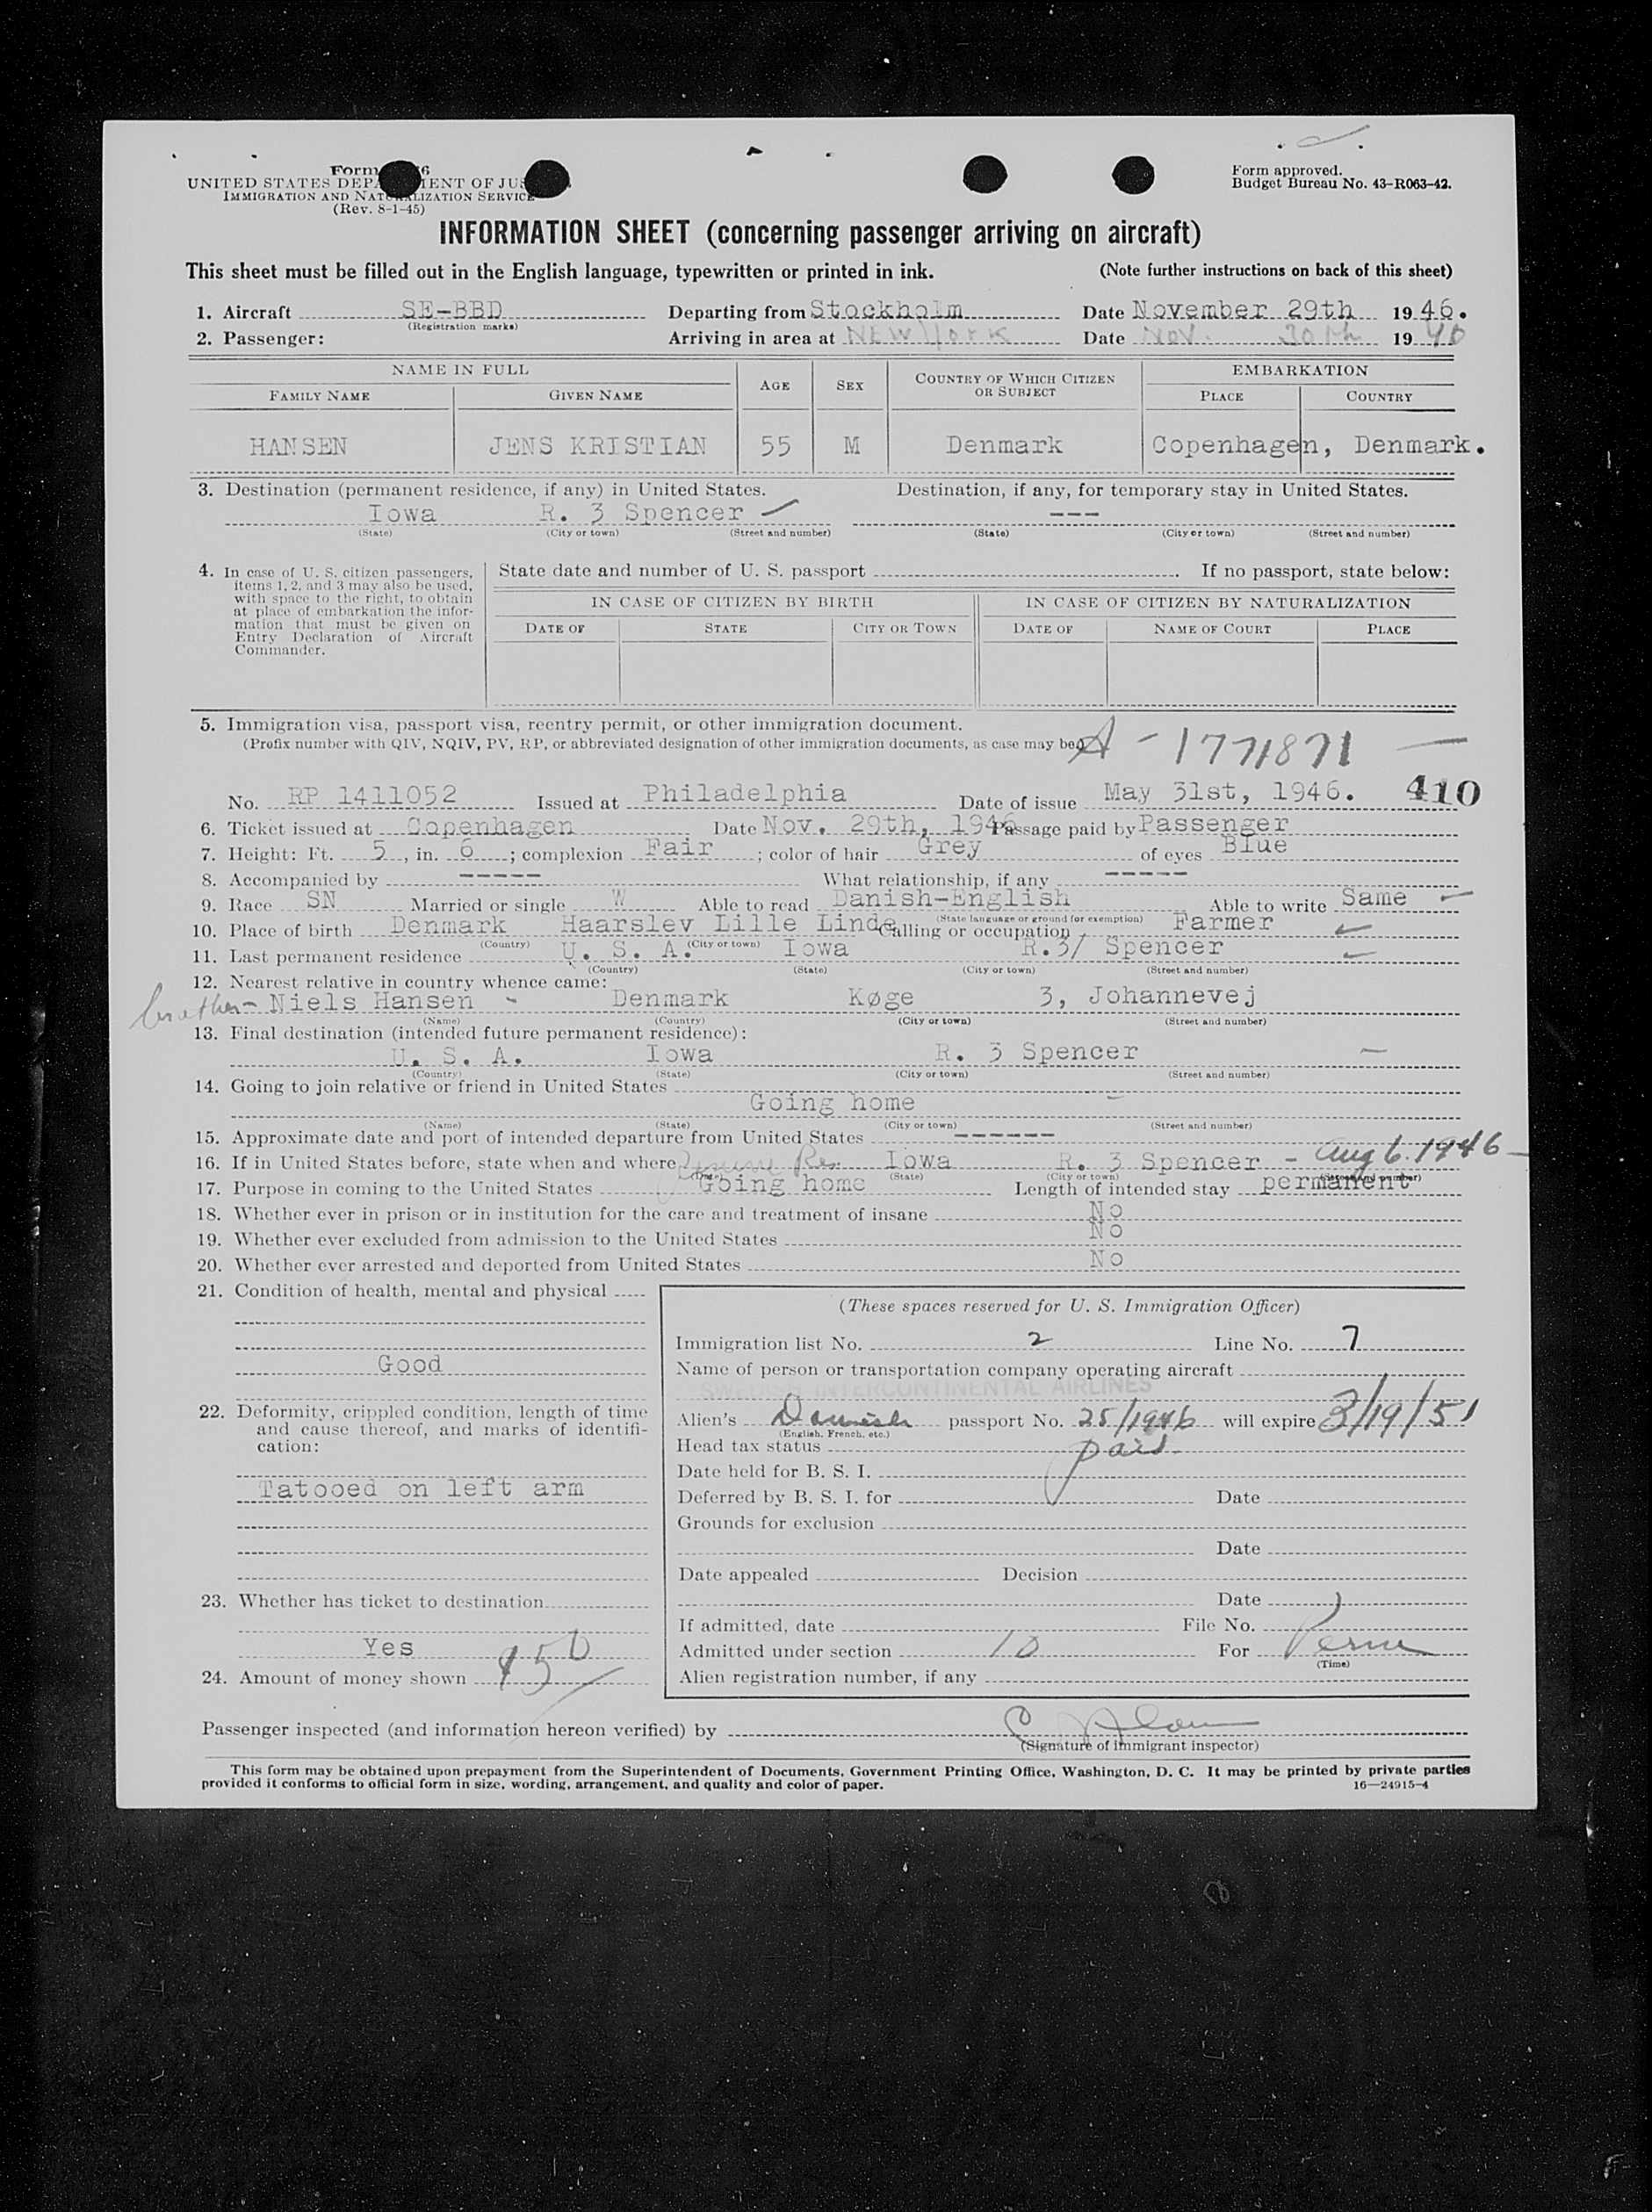 Form
UNITED STATES DEPARTMENT OF JUSTICE
IMMIGRATION AND NATURALIZATION SERVICE
(Rev. 8-1-45)
Form approved.
Budget Bureau No. 43-R063-42.
INFORMATION SHEET (concerning passenger arriving on aircraft)
This sheet must be filled out in the English language, typewritten or printed in ink. (Note further instructions on back of this sheet)
1. Aircraft SE-BBD Departing from Stockholm Date November 29th 1946.
(Registration marks)
2. Passenger: Arriving in area at NEW York Date NOV. 30th 1946
NAME IN FULL AGE SEX COUNTRY OF WHICH CITIZEN OR SUBJECT EMBARKATION
FAMILY NAME GIVEN NAME PLACE COUNTRY
HANSEN JENS KRISTIAN 55 M Denmark Copenhagen, Denmark.
3. Destination (permanent residence, if any) in United States. Destination, if any, for temporary stay in United States.
Iowa R. 3 Spencer ---
(State) (City or town) (Street and number) (State) (City or town) (Street and number)
4. In case of U. S. citizen passengers,
items 1, 2, and 3 may also be used,
with space to the right, to obtain
at place of embarkation the infor-
mation that must be given on
Entry Declaration of Aircraft
Commander.
State date and number of U. S. passport . If no passport, state below:
IN CASE OF CITIZEN BY BIRTH IN CASE OF CITIZEN BY NATURALIZATION
DATE OF STATE CITY OR TOWN DATE OF NAME OF COURT PLACE
5. Immigration visa, passport visa, reentry permit, or other immigration document.
(Prefix number with QIV, NQIV, PV, RP, or abbreviated designation of other immigration documents, as case may be.) A-1771871
No. RP 1411052 Issued at Philadelphia Date of issue May 31st, 1946. 410
6. Ticket issued at Copenhagen Date Nov. 29th, 1946 Passage paid by Passenger
7. Height: Ft. 5, in. 6; complexion Fair; color of hair Grey of eyes Blue
8. Accompanied by ----- What relationship, if any -----
9. Race SN Married or single W Able to read Danish-English Able to write Same
(State language or ground for exemption)
10. Place of birth Denmark Haarslev Lille Linde Calling or occupation Farmer
(Country) (City or town)
11. Last permanent residence U. S. A. Iowa R.3/ Spencer
(Country) (State) (City or town) (Street and number)
12. Nearest relative in country whence came:
brother - Niels Hansen - Denmark Køge 3, Johannevej
(Name) (Country) (City or town) (Street and number)
13. Final destination (intended future permanent residence):
U. S. A. Iowa R. 3 Spencer
(Country) (State) (City or town) (Street and number)
14. Going to join relative or friend in United States
Going home
(Name) (State) (City or town) (Street and number)
15. Approximate date and port of intended departure from United States ------
16. If in United States before, state when and where Iowa R. 3 Spencer - Aug 6. 1946
(State) (City or town) (Street and number)
17. Purpose in coming to the United States Going home Length of intended stay permanent
18. Whether ever in prison or in institution for the care and treatment of insane No
19. Whether ever excluded from admission to the United States No
20. Whether ever arrested and deported from United States No
21. Condition of health, mental and physical
Good
22. Deformity, crippled condition, length of time
and cause thereof, and marks of identifi-
cation:
Tatooed on left arm
23. Whether has ticket to destination
Yes
24. Amount of money shown $50
(These spaces reserved for U. S. Immigration Officer)
Immigration list No. 2 Line No. 7
Name of person or transportation company operating aircraft
SWEDISH INTERCONTINENTAL AIRLINES
Alien's Danish passport No. 25/1946 will expire 3/19/51
(English, French, etc.)
Head tax status paid
Date held for B. S. I.
Deferred by B. S. I. for Date
Grounds for exclusion
Date
Date appealed Decision
Date
If admitted, date File No.
Admitted under section 10 For Perm
(Time)
Alien registration number, if any
Passenger inspected (and information hereon verified) by
(Signature of immigrant inspector)
This form may be obtained upon prepayment from the Superintendent of Documents, Government Printing Office, Washington, D. C. It may be printed by private parties
provided it conforms to official form in size, wording, arrangement, and quality and color of paper. 16—24915-4